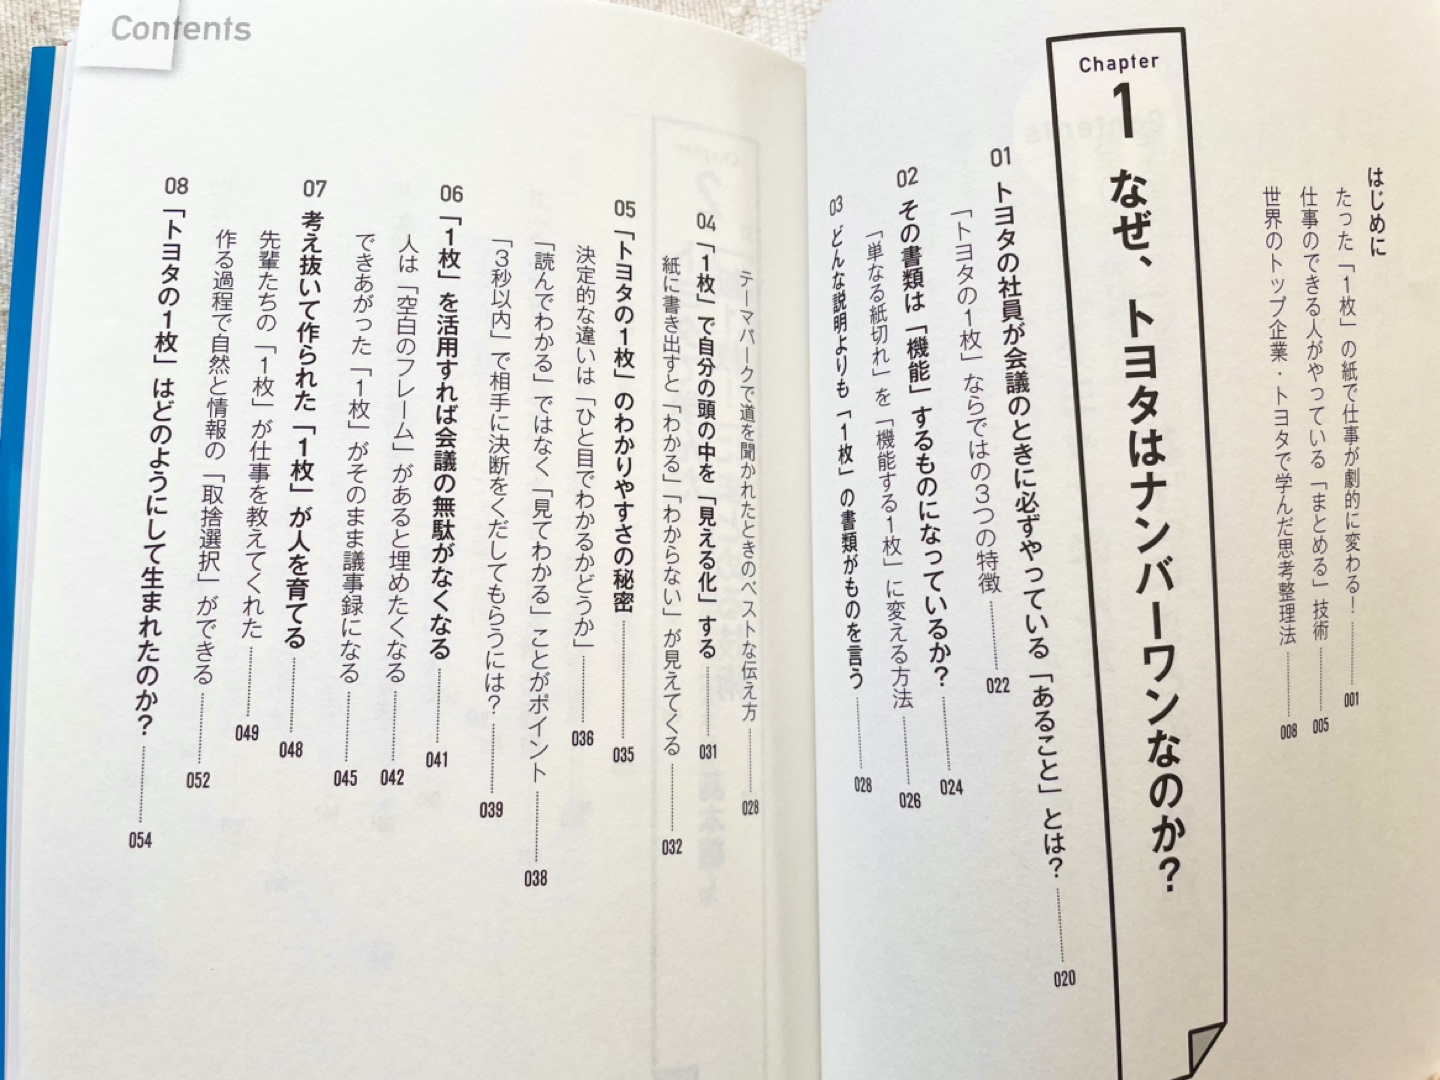 はじめに
たった「1枚」の紙で仕事が劇的に変わる! 001
仕事のできる人がやっている「まとめる」技術 005
世界のトップ企業・トヨタで学んだ思考整理法 008
Chapter
1 なぜ、トヨタはナンバーワンなのか?
01 トヨタの社員が会議のときに必ずやっている「あること」とは? 020
「トヨタの1枚」ならではの3つの特徴 022
02 その書類は「機能」するものになっているか? 024
「単なる紙切れ」を「機能する1枚」に変える方法 026
03 どんな説明よりも「1枚」の書類がものを言う 028
Contents
テーマパークで道を聞かれたときのベストな伝え方 028
04 「1枚」で自分の頭の中を「見える化」する 031
紙に書き出すと「わかる」「わからない」が見えてくる 032
05 「トヨタの1枚」のわかりやすさの秘密 035
決定的な違いは「ひと目でわかるかどうか」 036
「読んでわかる」ではなく「見てわかる」ことがポイント 038
「3秒以内」で相手に決断をくだしてもらうには? 039
06 「1枚」を活用すれば会議の無駄がなくなる 041
人は「空白のフレーム」があると埋めたくなる 042
できあがった「1枚」がそのまま議事録になる 045
07 考え抜いて作られた「1枚」が人を育てる 048
先輩たちの「1枚」が仕事を教えてくれた 049
作る過程で自然と情報の「取捨選択」ができる 052
08 「トヨタの1枚」はどのようにして生まれたのか? 054